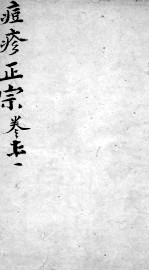 痘疹正宗卷上一